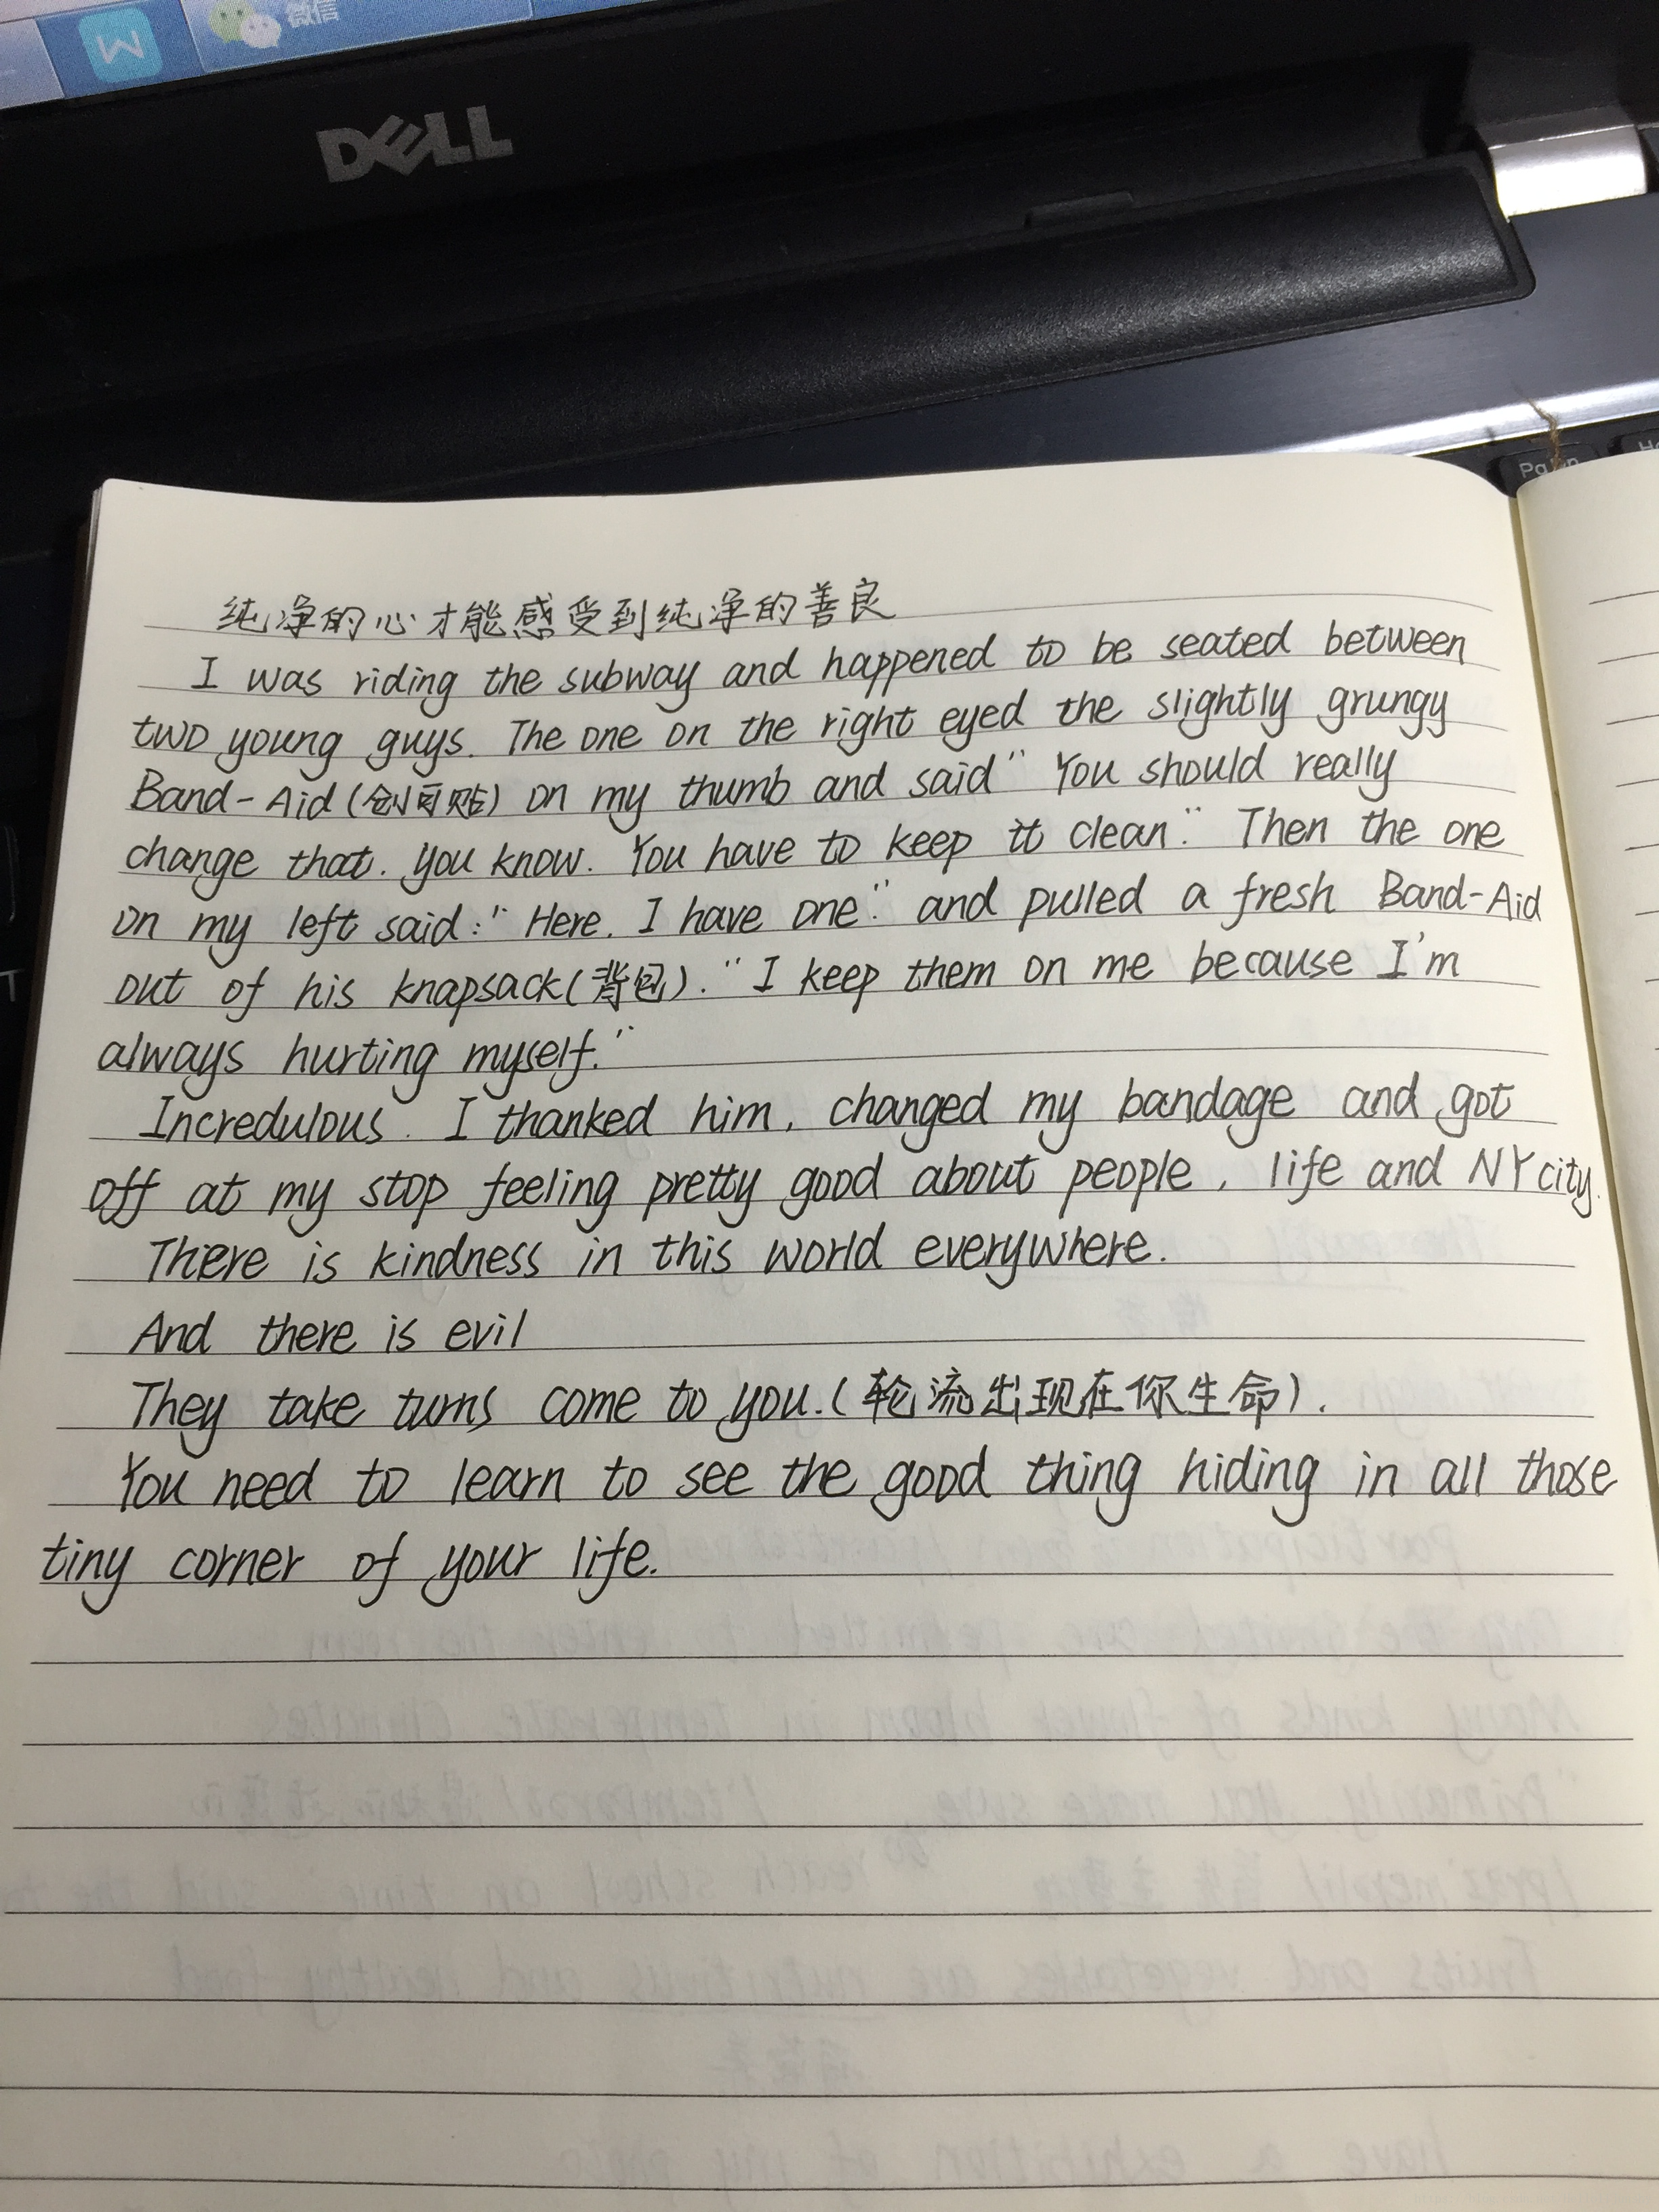 微信
DELL
纯净的心才能感受到纯净的善良
I was riding the subway and happened to be seated between
two young guys. The one on the right eyed the slightly grungy
Band-Aid (创可贴) on my thumb and said " You should really
change that. you know. You have to keep it clean." Then the one
on my left said: " Here. I have one." and pulled a fresh Band-Aid
out of his knapsack (背包). " I keep them on me because I'm
always hurting myself."
Incredulous. I thanked him, changed my bandage and got
off at my stop feeling pretty good about people, life and NY city.
There is kindness in this world everywhere.
And there is evil
They take turns come to you. (轮流出现在你生命).
You need to learn to see the good thing hiding in all those
tiny corner of your life.